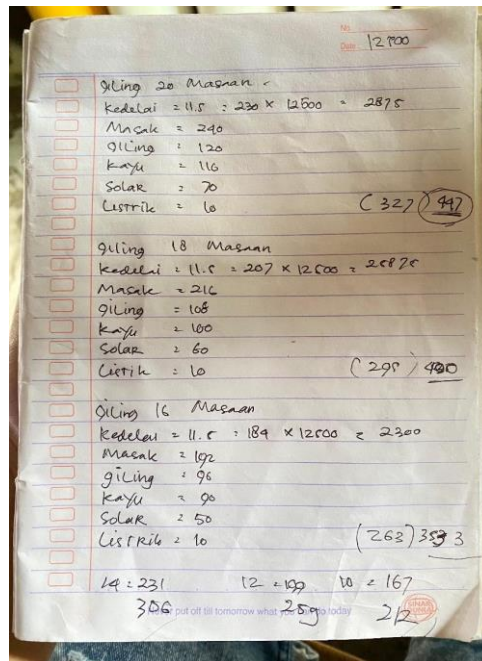 No.
Date 12500
Giling 20 Masaan -
Kedelai = 11.5 = 230 x 12500 = 2875
Masak = 240
Giling = 120
Kayu = 116
Solar = 70
Listrik = 10
(327) 447
Giling 18 Masaan
Kedelai = 11.5 = 207 x 12500 = 25875
Masak = 216
Giling = 108
Kayu = 100
Solar = 60
Listrik = 10
(295)
Giling 16 Masaan
Kedelai = 11.5 = 184 x 12500 = 2300
Masak = 192
giling = 96
Kayu = 90
Solar = 50
Listrik = 10
(263)
14 = 231 12 = 199 10 = 167
306 259 212
put off till tomorrow what you can do today